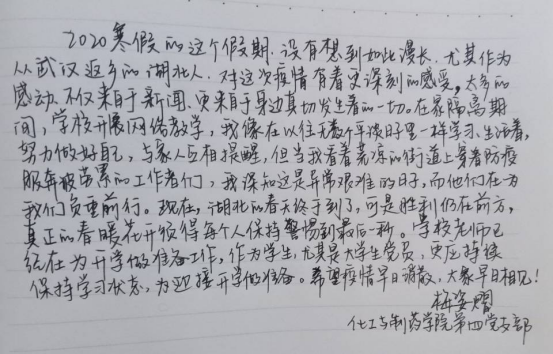 2020寒假的这个假期,没有想到如此漫长,尤其作为
从武汉返乡的湖北人,对这次疫情有着更深刻的感受,太多的
感动,不仅来自于新闻,更来自于身边真切发生着的一切。在家隔离期
间,学校开展网络教学,我像在以往无数个平淡日子里一样学习、生活着,
努力做好自己,与家人互相提醒,但当我看着荒凉的街道上穿着防疫
服奔波劳累的工作者们,我深知这是异常艰难的日子,而他们在为
我们负重前行。现在,湖北的春天终于到了,可是胜利仍在前方,
真正的春暖花开须得每个人保持警惕到最后一秒。学校老师已
经在为开学做准备工作,作为学生,尤其是大学生党员,更应持续
保持学习状态,为迎接开学做准备。希望疫情早日消散,大家早日相见!
梅姿
化工与制药学院第四党支部